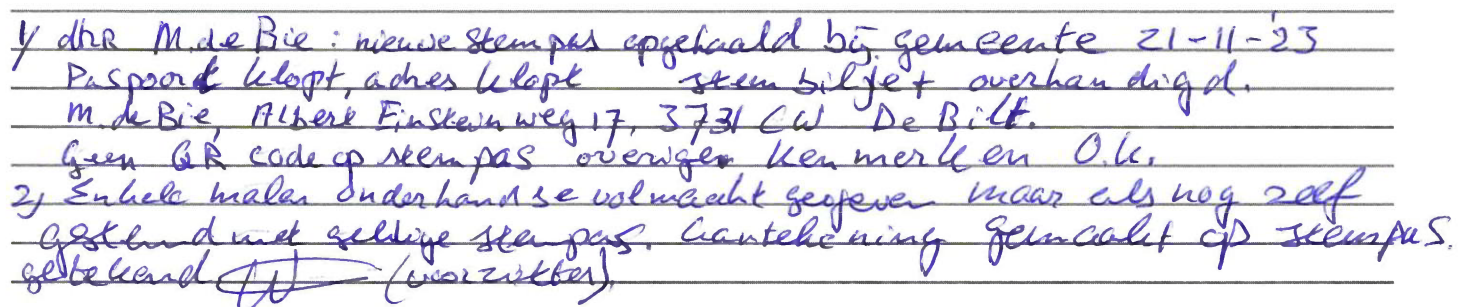 1/ dhr M. de Bie : nieuwe stempas opgehaald bij gemeente 21-11-'23
Paspoort klopt, adres klopt stembiljet overhandigd.
M. de Bie, Albert Einsteinweg 17, 3731 CW De Bilt.
Geen QR code op stempas overige kenmerken O.k.
2) Enkele malen onderhandse volmacht gegeven maar als nog zelf
gestemd met geldige stempas. Aantekening gemaakt op stempas.
getekend (voorzitter).